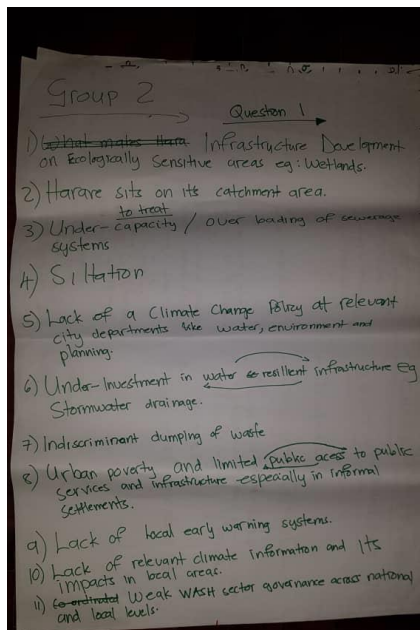 Group 2
Question 1
1) What makes Hara Infrastructure Development
on Ecologically Sensitive areas eg: Wetlands.
2) Harare sits on its catchment area.
to treat
3) Under-capacity / over loading of sewerage
systems
4) Siltation
5) Lack of a Climate Change Policy at relevant
city departments like water, environment and
planning.
6) Under-Investment in water resilient infrastructure eg
Stormwater drainage.
7) Indiscriminent dumping of waste
8) Urban poverty and limited public acess to public
services and infrastructure especially in informal
settlements.
9) Lack of local early warning systems.
10) Lack of relevant climate information and its
impacts in local areas.
11) Co-ordinated Weak WASH sector governance across national
and local levels.